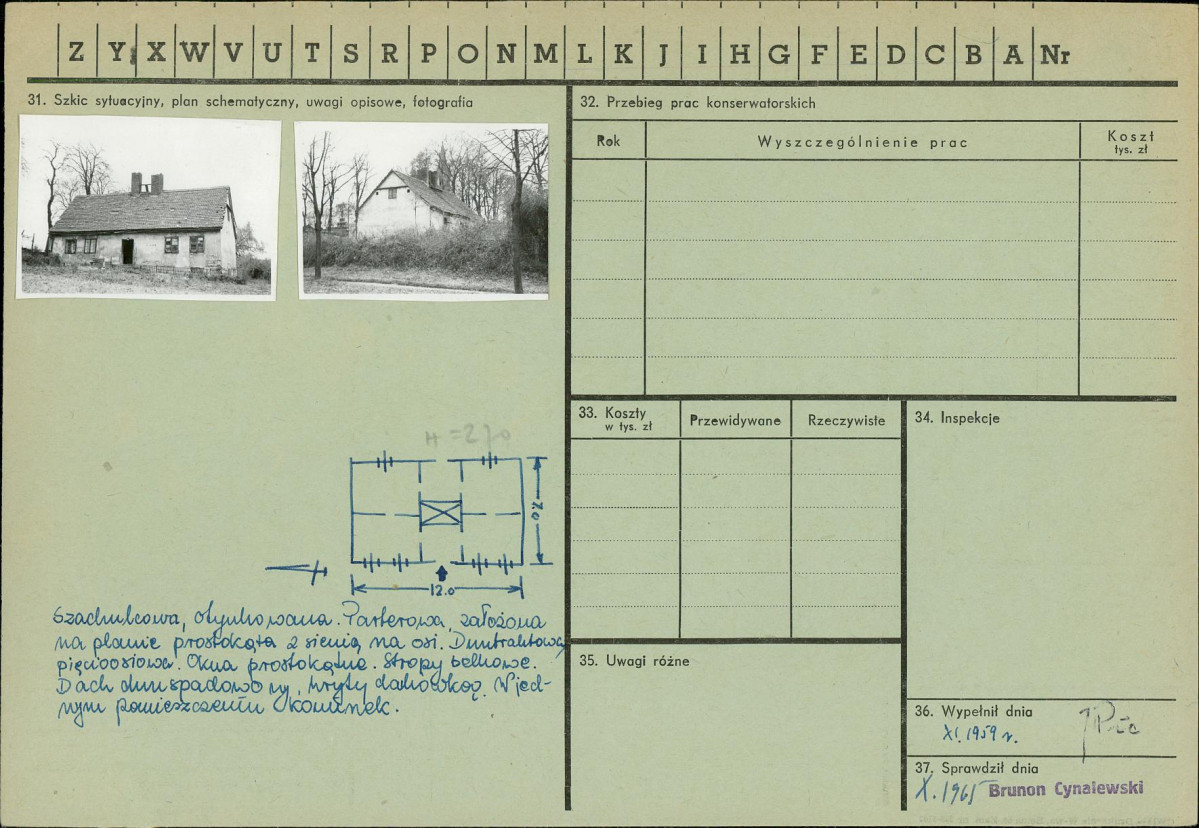 Z Y X W V U T S R P O N M L K J I H G F E D C B A Nr
31. Szkic sytuacyjny, plan schematyczny, uwagi opisowe, fotografia
H = 270
7.0
12.0
Szachulcowa, otynkowana. Parterowa, założona
na planie prostokąta z sienią na osi. Dwutraktowa,
pięcioosiowa. Okna prostokątne. Stropy belkowe.
Dach dwuspadowy, kryty dachówką. W jed-
nym pomieszczeniu kominek.
32. Przebieg prac konserwatorskich
Rok
Wyszczególnienie prac
Koszt
tys. zł
33. Koszty
w tys. zł
Przewidywane
Rzeczywiste
34. Inspekcje
35. Uwagi różne
36. Wypełnił dnia
XI. 1959 r.
37. Sprawdził dnia
X. 1965 Brunon Cynalewski